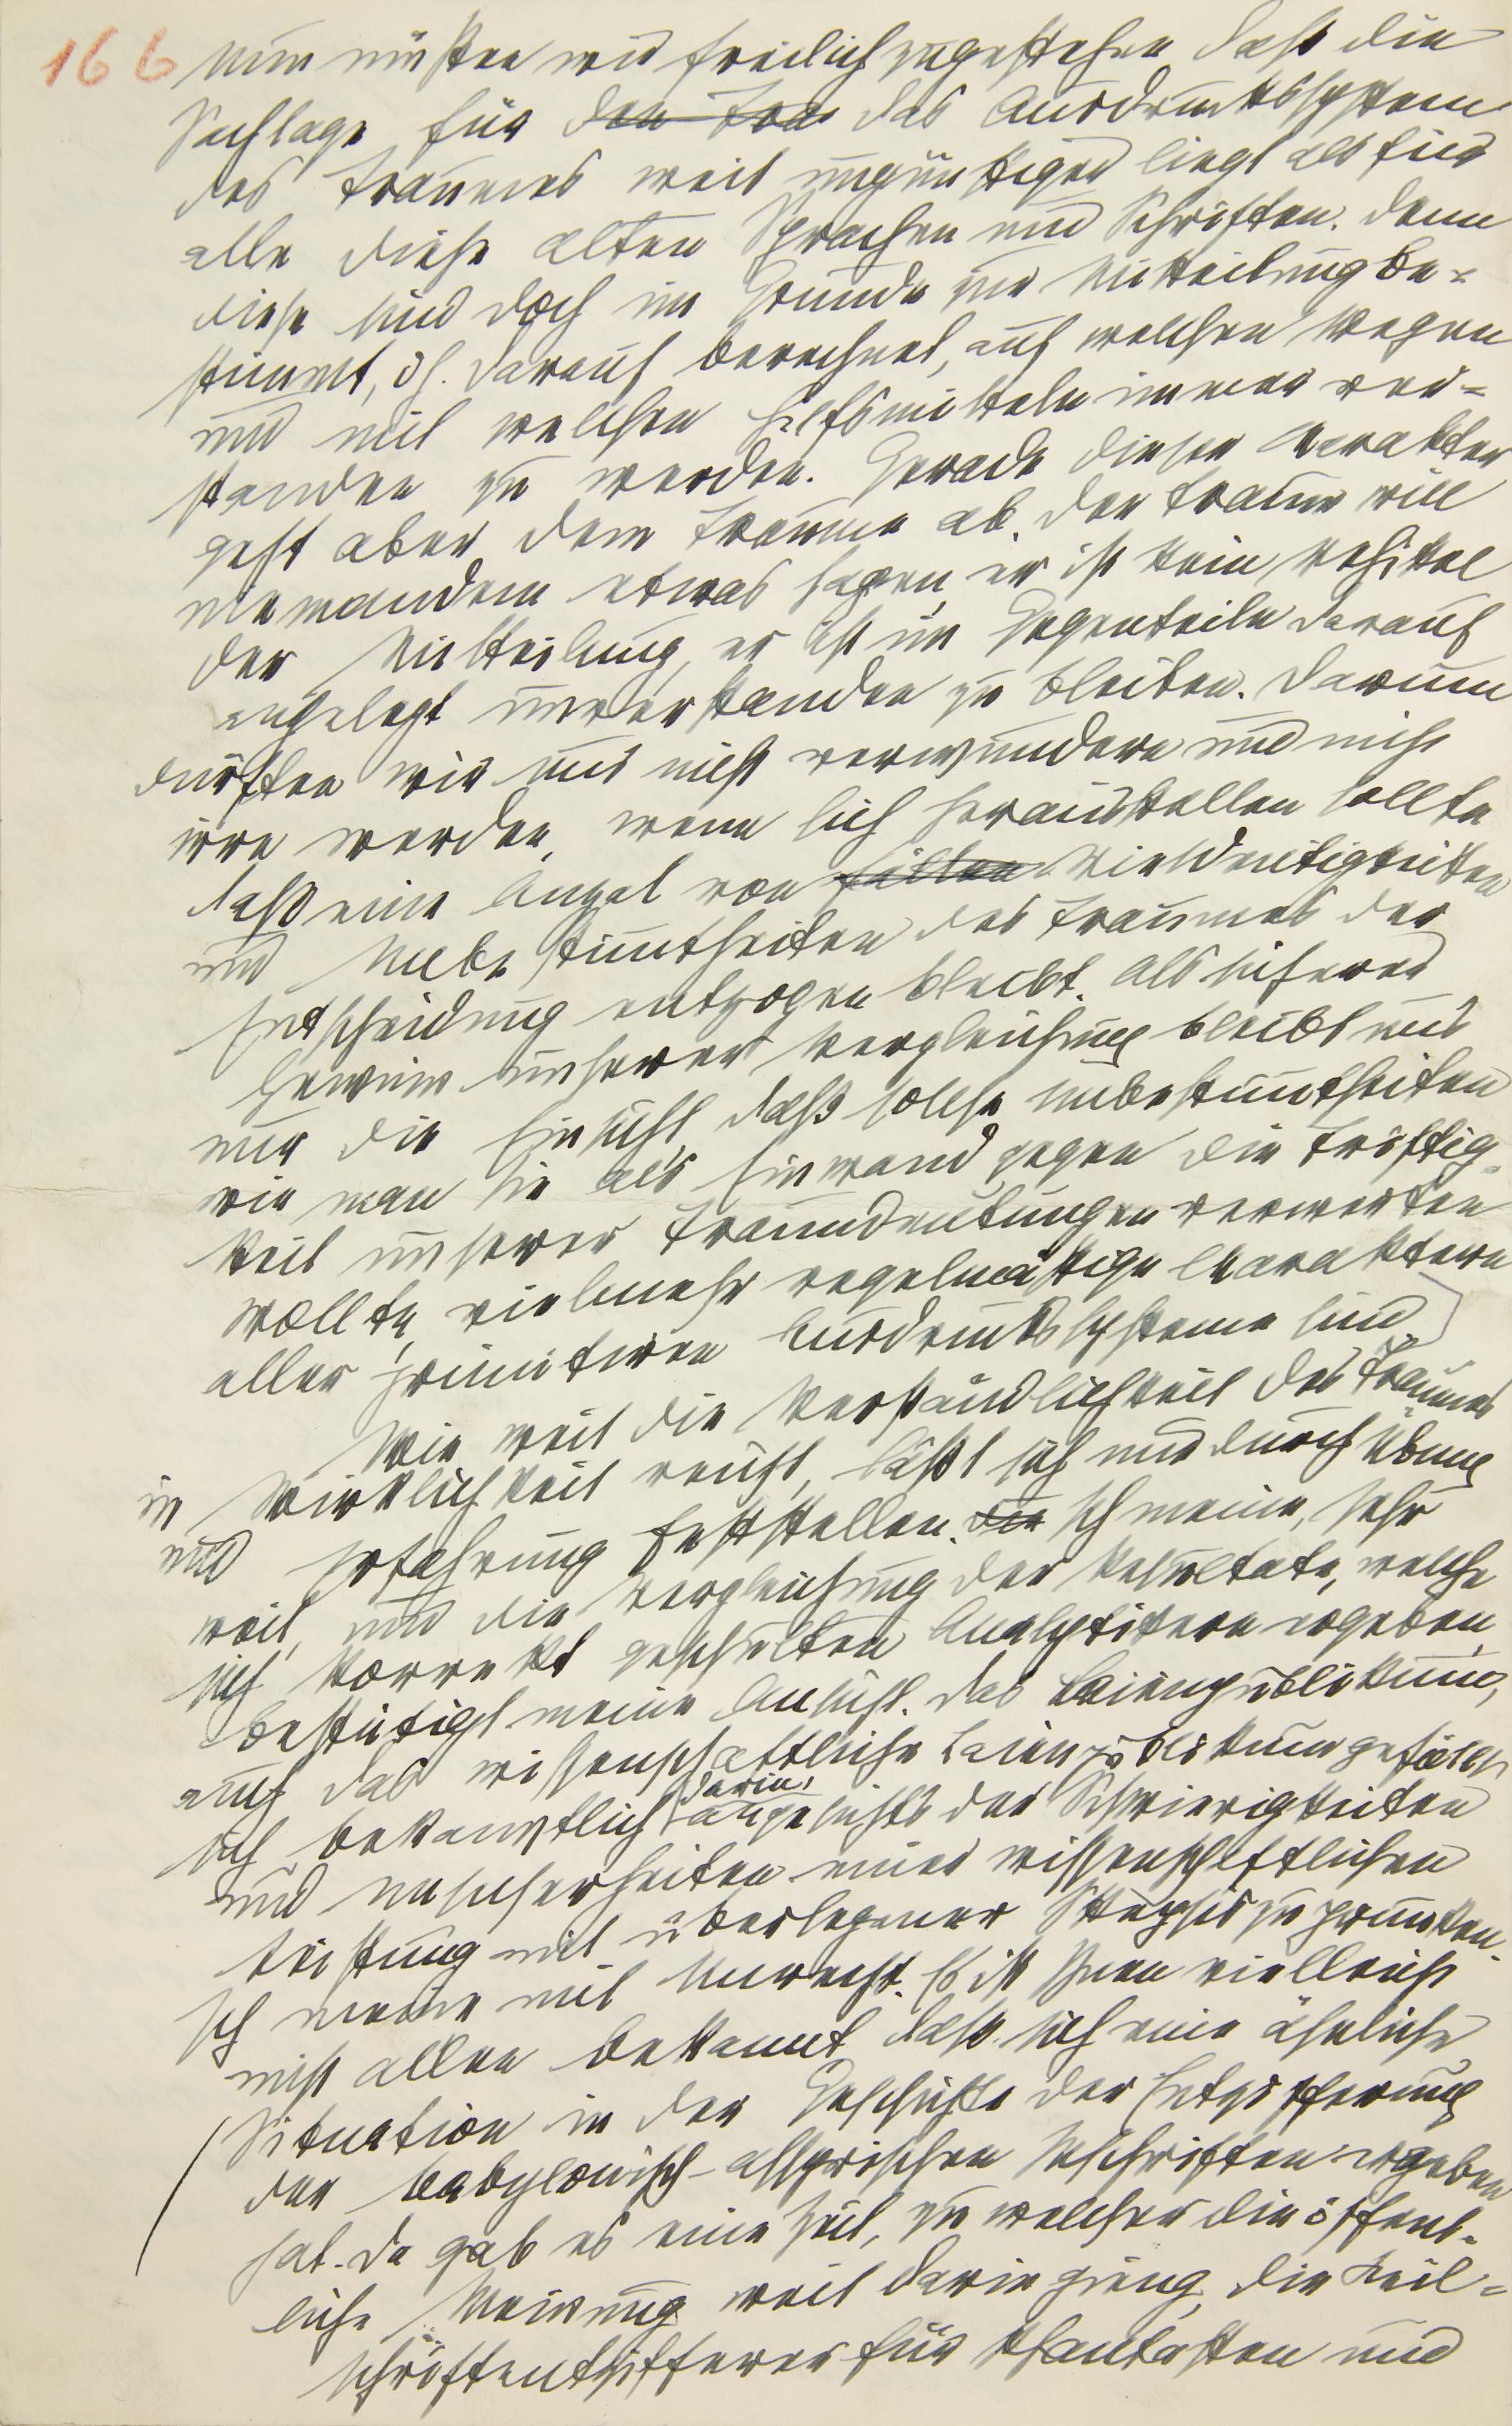 166 Nun müssen wir freilich zugestehen, daß die
Sachlage für den Tra das Ausdruckssystem
des Traumes weit ungünstiger liegt als für
alle diese alten Sprachen und Schriften. Denn
diese sind doch im Grunde zur Mitteilung be-
stimmt, dh. darauf berechnet, auf welchen Wegen
und mit welchen Hilfsmitteln immer ver-
standen zu werden. Gerade dieser Charakter
geht aber dem Traume ab. Der Traum will
niemandem etwas sagen, er ist kein Vehikel
der Mitteilung, er ist im Gegenteile darauf
angelegt unverstanden zu bleiben. Darum
dürften wir uns nicht verwundern und nicht
irre werden, wenn sich herausstellen sollte
daß eine Anzal von Fällen Vieldeutigkeiten
und Unbestimmtheiten des Traumes der
Entscheidung entzogen bleibt. Als sicherer
Gewinn unserer Vergleichung bleibt uns
nur die Einsicht, daß solche Unbestimmtheiten
wie man sie als Einwand gegen die Triftig-
keit unserer Traumdeutungen verwerten
wollte, vielmehr regelmäßige Charaktere
aller primitiven Ausdruckssysteme sind
Wie weit die Verständlichkeit des Traumes
in Wirklichkeit reicht, läßt sich nur durch Übung
und Erfahrung feststellen. Die Ich meine, sehr
weit, und die Vergleichung der Resultate, welche
sich korrekt geschulten Analytikern ergeben,
bestätigt meine Ansicht. Das Laienpublikum,
auch das wissenschaftliche Laienpublikum gefällt
sich bekanntlich darin, angesichts der Schwierigkeiten
und Unsicherheiten einer wissenschaftlichen
Leistung mit überlegener Skepsis zu prunken.
Ich meine mit Unrecht. Es ist Ihnen vielleicht
nicht allen bekannt, daß sich eine ähnliche
Situation in der Geschichte der Entzifferung
der babylonisch-assyrischen Inschriften ergeben
hat. Da gab es eine Zeit, zu welcher die öffent-
liche Meinung weit darin gieng, die Keil-
schriftentzifferer für Phantasten und